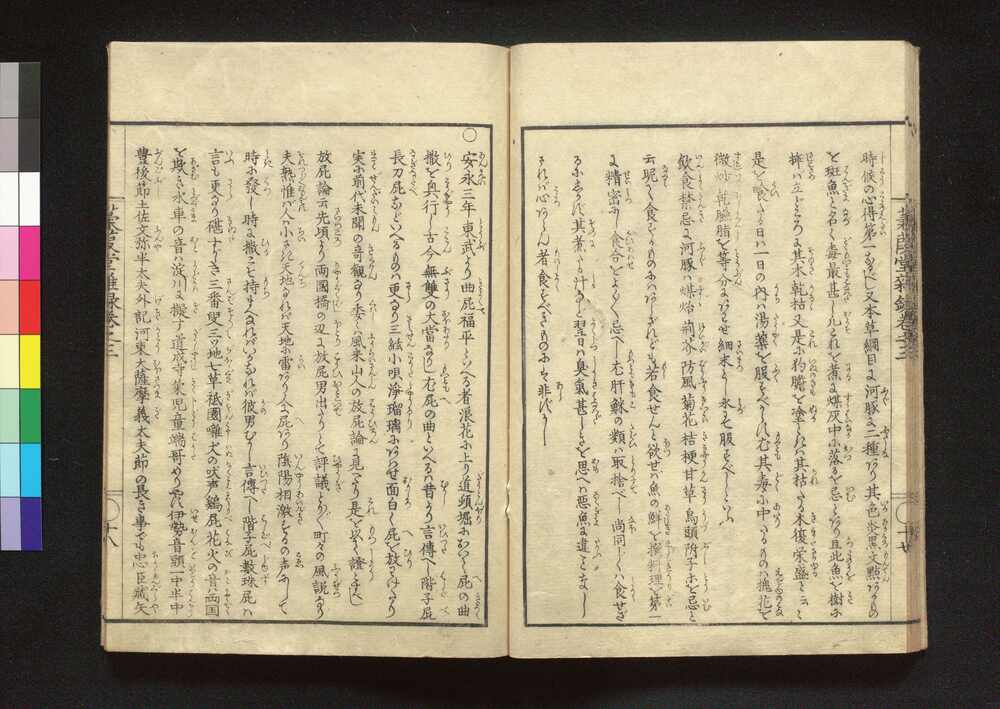 時候の心得第一なるべし又本草綱目に河豚に二種あり其色炎黒文點あるもの
を斑魚と名く毒最甚しこれを煮るに煤灰中に落るを忌といへり且此魚を樹に
挿バ立どころに其木乾枯又是に狗膽を塗るときハ其枯たる木復栄盛と云こ
是を喰たる日ハ一日の内ハ湯薬を服すべからず尤其毒に中たるものハ槐花を
微炒乾臙脂を等分にあわせ細末にし水にて服すべしといふ
飲食禁忌に河豚ハ煤炲荊芥防風菊花桔梗甘草烏頭附子を忌と
云呢く食ふべからざれども若食せんと欲せバ魚の鮮を撰料理を第一
に精密にし食合をよく忌べし尤肝鮴の類ハ取捨べし尚同じくハ食せざ
るにしかず其煮たる汁など翌日ハ臭氣甚しきを思へバ悪魚に違ことなし
されバ心あらん者食すべきものにも非ずかし
〇安永三年東武より曲屁福平といへる者浪花に上り道頓堀において屁の曲
撒を興行し古今無雙の大當なりし尤屁の曲といへるハ昔より言傳へし階子屁
長刀屁などいへるものハ更なり三絃小唄浄瑠璃にあハせ面白く屁を放わけたり
実に前代未聞の奇観なり委く風来山人の放屁論に見へたり是を以て證とすべし
放屁論云先頃より両國橋の辺に放屁男出たりとて評議とり〴〵町々の風説なり
夫熟惟ハ人ハ小さき天地なれバ天地に雷あり人に屁あり陰陽相激するの声にして
時に發し時に撒こそ持まへなれバいかなれバ彼男むかし言傳へし階子屁数珠屁ハ
言も更なり碪すがゝき三番叟三つ地七草祇園囃犬の吠声鶏屁花火の響ハ両国
を欺き水車の音ハ淀川に擬す道成寺菊児童端哥めりやす伊勢音頭一中半中
豊後節土佐文弥半太夫外記河東大薩摩義太夫節の長き事でも忠臣蔵矢